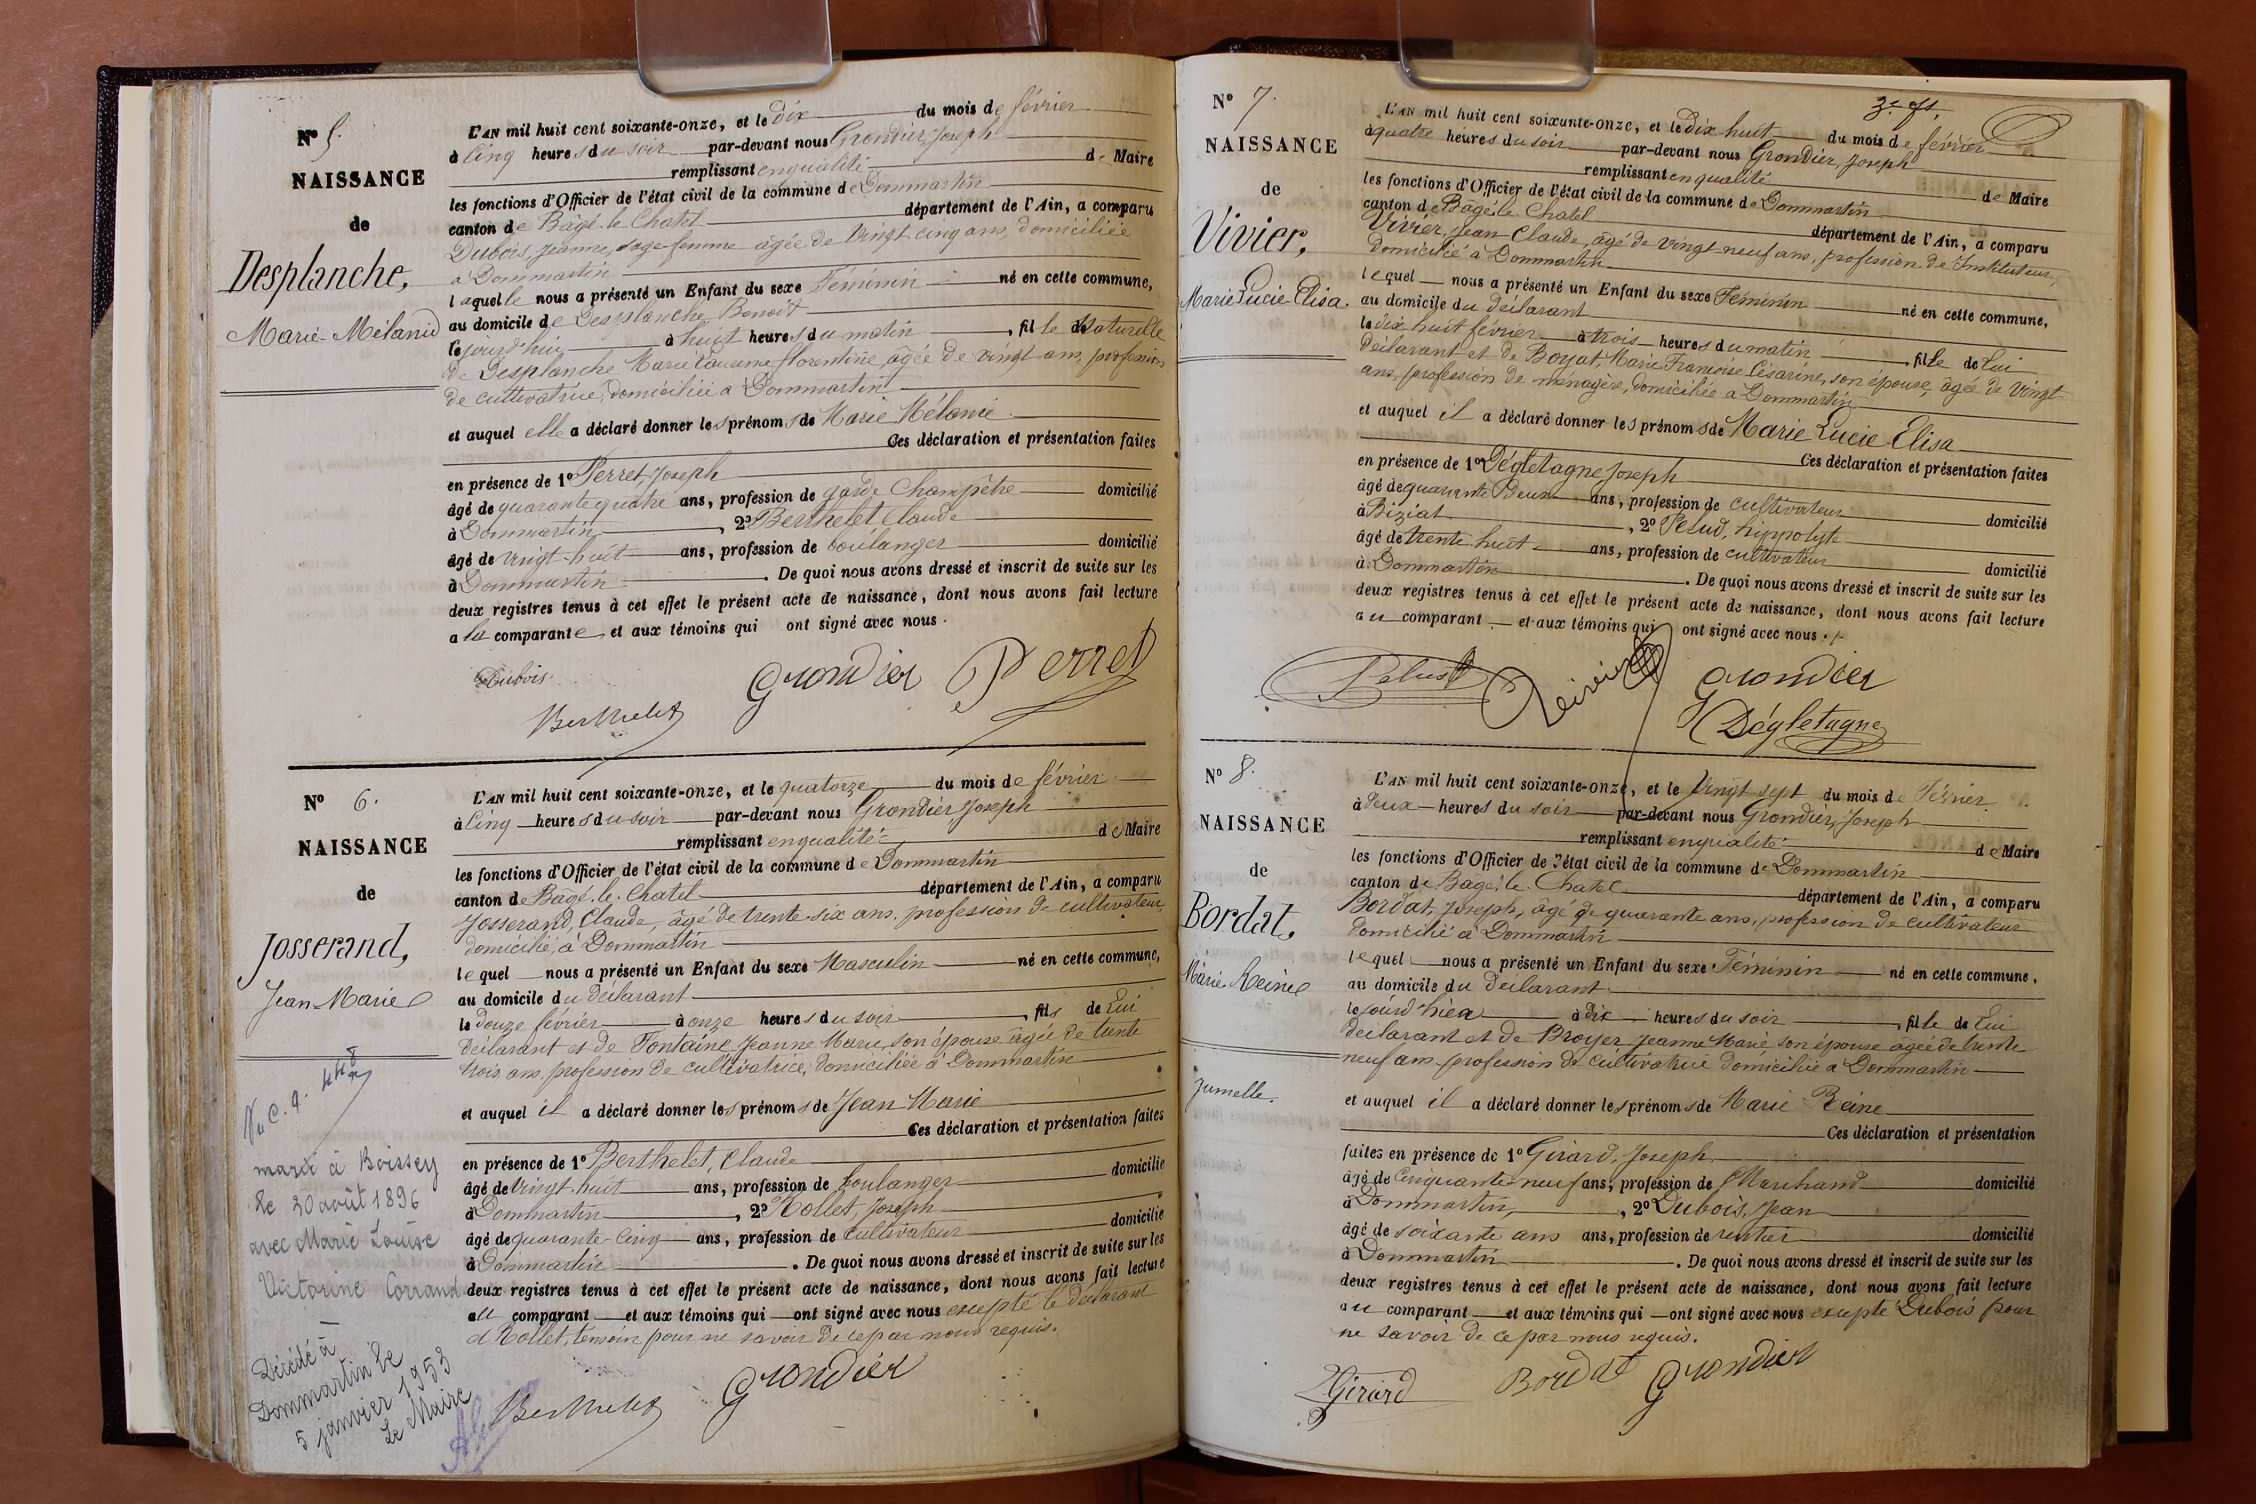 Nº 5.
NAISSANCE
de
Desplanche,
Marie Mélanie
L'AN mil huit cent soixante-onze, et le dix du mois de février
à cinq heures du soir par-devant nous Grondier, Joseph
remplissant en qualité de Maire
les fonctions d'Officier de l'état civil de la commune de Dommartin
canton de Bâgé-le-Chatel département de l'Ain, a comparu
Dubois, Jeanne, sage-femme âgée de vingt cinq ans, domiciliée
à Dommartin
laquelle nous a présenté un Enfant du sexe Féminin né en cette commune,
au domicile de Desplanche Benoît
le jourd'hui à huit heures du matin, fille Naturelle
de Desplanche Marie Florentine, âgée de vingt ans, profession
de cultivatrice, domiciliée à Dommartin
et auquel elle a déclaré donner les prénoms de Marie Mélanie
Ces déclaration et présentation faites
en présence de 1º Perret, Joseph
âgé de quarante quatre ans, profession de garde Champêtre domicilié
à Dommartin, 2º Berthelet Claude
âgé de vingt-huit ans, profession de boulanger domicilié
à Dommartin. De quoi nous avons dressé et inscrit de suite sur les
deux registres tenus à cet effet le présent acte de naissance, dont nous avons fait lecture
a la comparante et aux témoins qui ont signé avec nous.
Dubois. Grondier Perret
Berthelet
Nº 6.
NAISSANCE
de
Josserand,
Jean-Marie
L'AN mil huit cent soixante-onze, et le quatorze du mois de février
à cinq heures du soir par-devant nous Grondier, Joseph
remplissant en qualité de Maire
les fonctions d'Officier de l'état civil de la commune de Dommartin
canton de Bâgé-le-Chatel département de l'Ain, a comparu
Josserand, Claude, âgé de trente-six ans, profession de cultivateur
domicilié, à Dommartin
lequel nous a présenté un Enfant du sexe Masculin né en cette commune,
au domicile du déclarant
le douze février à onze heures du soir, fils de Lui
déclarant et de Fontaine Jeanne Marie, son épouse âgée de trente
trois ans, profession de cultivatrice, domiciliée à Dommartin
et auquel il a déclaré donner les prénoms de Jean Marie
Ces déclaration et présentation faites
en présence de 1º Berthelet, Claude
âgé de vingt-huit ans, profession de boulanger domicilié
à Dommartin, 2º Rollet, Joseph
âgé de quarante-cinq ans, profession de cultivateur domicilié
à Dommartin. De quoi nous avons dressé et inscrit de suite sur les
deux registres tenus à cet effet le présent acte de naissance, dont nous avons fait lecture
au comparant et aux témoins qui ont signé avec nous excepté le déclarant
et Rollet, témoin pour ne savoir de ce par nous requis.
Berthelet Grondier
marié à Boissey
le 30 août 1896
avec Marie Louise
Victorine Corrand
Décédé à
Dommartin le
5 janvier 1953
Le Maire
Nº 7.
NAISSANCE
de
Vivier,
Marie Lucie Elisa.
L'AN mil huit cent soixante-onze, et le dix huit du mois de février
à quatre heures du soir par-devant nous Grondier, Joseph
remplissant en qualité de Maire
les fonctions d'Officier de l'état civil de la commune de Dommartin
canton de Bâgé-le-Chatel département de l'Ain, a comparu
Vivier, Jean Claude, âgé de vingt-neuf ans, profession de Instituteur,
domicilié à Dommartin
lequel nous a présenté un Enfant du sexe Féminin né en cette commune,
au domicile du déclarant
le dix huit février à trois heures du matin, fille de Lui
déclarant et de Boyat, Marie Françoise Césarine, son épouse, âgée de vingt
ans, profession de ménagère, domiciliée à Dommartin
et auquel il a déclaré donner les prénoms de Marie Lucie Elisa
Ces déclaration et présentation faites
en présence de 1º Dégletagne Joseph
âgé de quarante Deux ans, profession de cultivateur domicilié
à Biziat, 2º Pelud, hippolyte
âgé de trente huit ans, profession de cultivateur domicilié
à Dommartin. De quoi nous avons dressé et inscrit de suite sur les
deux registres tenus à cet effet le présent acte de naissance, dont nous avons fait lecture
au comparant et aux témoins qui ont signé avec nous.
Pelud Vivier Grondier
Dégletagne
Nº 8.
NAISSANCE
de
Bordat,
Marie Reine
Jumelle.
L'AN mil huit cent soixante-onze, et le vingt-sept du mois de Février
à Deux heures du soir par-devant nous Grondier, Joseph
remplissant en qualité de Maire
les fonctions d'Officier de l'état civil de la commune de Dommartin
canton de Bâgé-le-Chatel département de l'Ain, a comparu
Bordat, Joseph, âgé de quarante ans, profession de cultivateur
domicilié à Dommartin
lequel nous a présenté un Enfant du sexe Féminin né en cette commune,
au domicile du déclarant
le jourd'hier à dix heures du soir, fille de Lui
déclarant et de Broyer Jeanne Marie son épouse âgée de trente
neuf ans, profession de cultivatrice domiciliée à Dommartin
et auquel il a déclaré donner les prénoms de Marie Reine
Ces déclaration et présentation
faites en présence de 1º Girard, Joseph
âgé de cinquante-neuf ans, profession de Marchand domicilié
à Dommartin, 2º Dubois, Jean
âgé de soixante ans ans, profession de rentier domicilié
à Dommartin. De quoi nous avons dressé et inscrit de suite sur les
deux registres tenus à cet effet le présent acte de naissance, dont nous avons fait lecture
au comparant et aux témoins qui ont signé avec nous excepté Dubois pour
ne savoir de ce par nous requis.
Girard Bordat Grondier